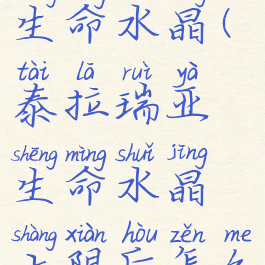 生命水晶(
tài lā ruì yà
泰拉瑞亚
shēng mìng shuǐ jīng
生命水晶
shàng xiàn hòu zěn me
上限后怎么